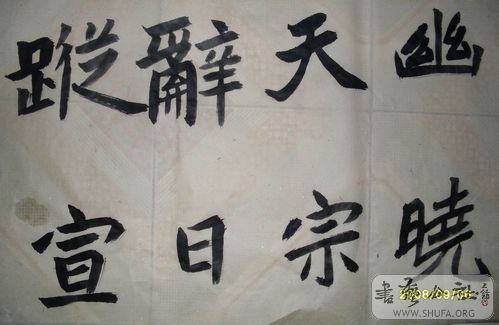 幽曉
天宗
辭日
蹤宣
2008/09/06
書法公社
WWW.SHUFA.ORG